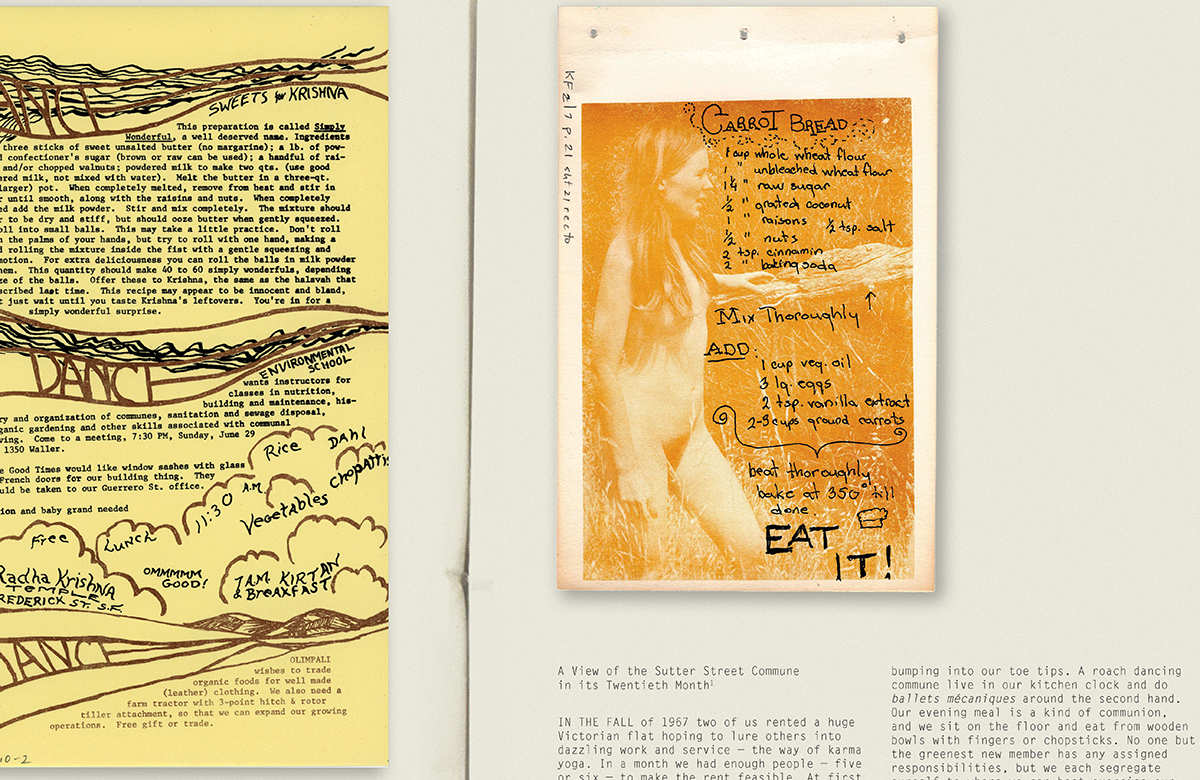 SWEETS for KRISHNA
This preparation is called Simply
Wonderful, a well deserved name. Ingredients
three sticks of sweet unsalted butter (no margarine); a lb. of pow-
confectioner's sugar (brown or raw can be used); a handful of rai-
and/or chopped walnuts; powdered milk to make two qts. (use good
ered milk, not mixed with water). Melt the butter in a three-qt.
larger) pot. When completely melted, remove from heat and stir in
until smooth, along with the raisins and nuts. When completely
ed add the milk powder. Stir and mix completely. The mixture should
to be dry and stiff, but should ooze butter when gently squeezed.
oll into small balls. This may take a little practice. Don't roll
n the palms of your hands, but try to roll with one hand, making a
d rolling the mixture inside the fist with a gentle squeezing and
motion. For extra deliciousness you can roll the balls in milk powder
hem. This quantity should make 40 to 60 simply wonderfuls, depending
ze of the balls. Offer these to Krishna, the same as the halavah that
scribed last time. This recipe may appear to be innocent and bland,
t just wait until you taste Krishna's leftovers. You're in for a
simply wonderful surprise.
DANCE
ENVIRONMENTAL
SCHOOL
wants instructors for
classes in nutrition,
building and maintenance, his-
ry and organization of communes, sanitation and sewage disposal,
ganic gardening and other skills associated with communal
ving. Come to a meeting, 7:30 PM, Sunday, June 29
1350 Waller.
e Good Times would like window sashes with glass
French doors for our building thing. They
uld be taken to our Guerrero St. office.
ion and baby grand needed
Rice
Dahl
Chopattis
11:30 A.M.
Vegetables
Free
Lunch
Radha Krishna
TEMPLE
FREDERICK ST. S.F.
OMMMMM
GOOD!
7AM. KIRTAN
& BREAKFAST
OLIMPALI
wishes to trade
organic foods for well made
(leather) clothing. We also need a
farm tractor with 3-point hitch & rotor
tiller attachment, so that we can expand our growing
operations. Free gift or trade.
10-2
KF 2/7 p.21 sht 21 recto
CARROT BREAD
1 cup whole wheat flour
1 " unbleached wheat flour
1 1/4 " raw sugar
1/2 " grated coconut
1 " raisons 1/2 tsp. salt
1/2 " nuts
2 tsp. cinnamin
2 " baking soda
Mix Thoroughly
ADD:
1 cup veg. oil
3 lg. eggs
2 tsp. vanilla extract
2-3 cups ground carrots
beat thoroughly
bake at 350° till
done.
EAT
IT!
A View of the Sutter Street Commune
in its Twentieth Month¹
IN THE FALL of 1967 two of us rented a huge
Victorian flat hoping to lure others into
dazzling work and service — the way of karma
yoga. In a month we had enough people — five
or six — to make the rent feasible. At first
bumping into our toe tips. A roach dancing
commune live in our kitchen clock and do
ballets mécaniques around the second hand.
Our evening meal is a kind of communion,
and we sit on the floor and eat from wooden
bowls with fingers or chopsticks. No one but
the greenest new member has any assigned
responsibilities, but we each segregate